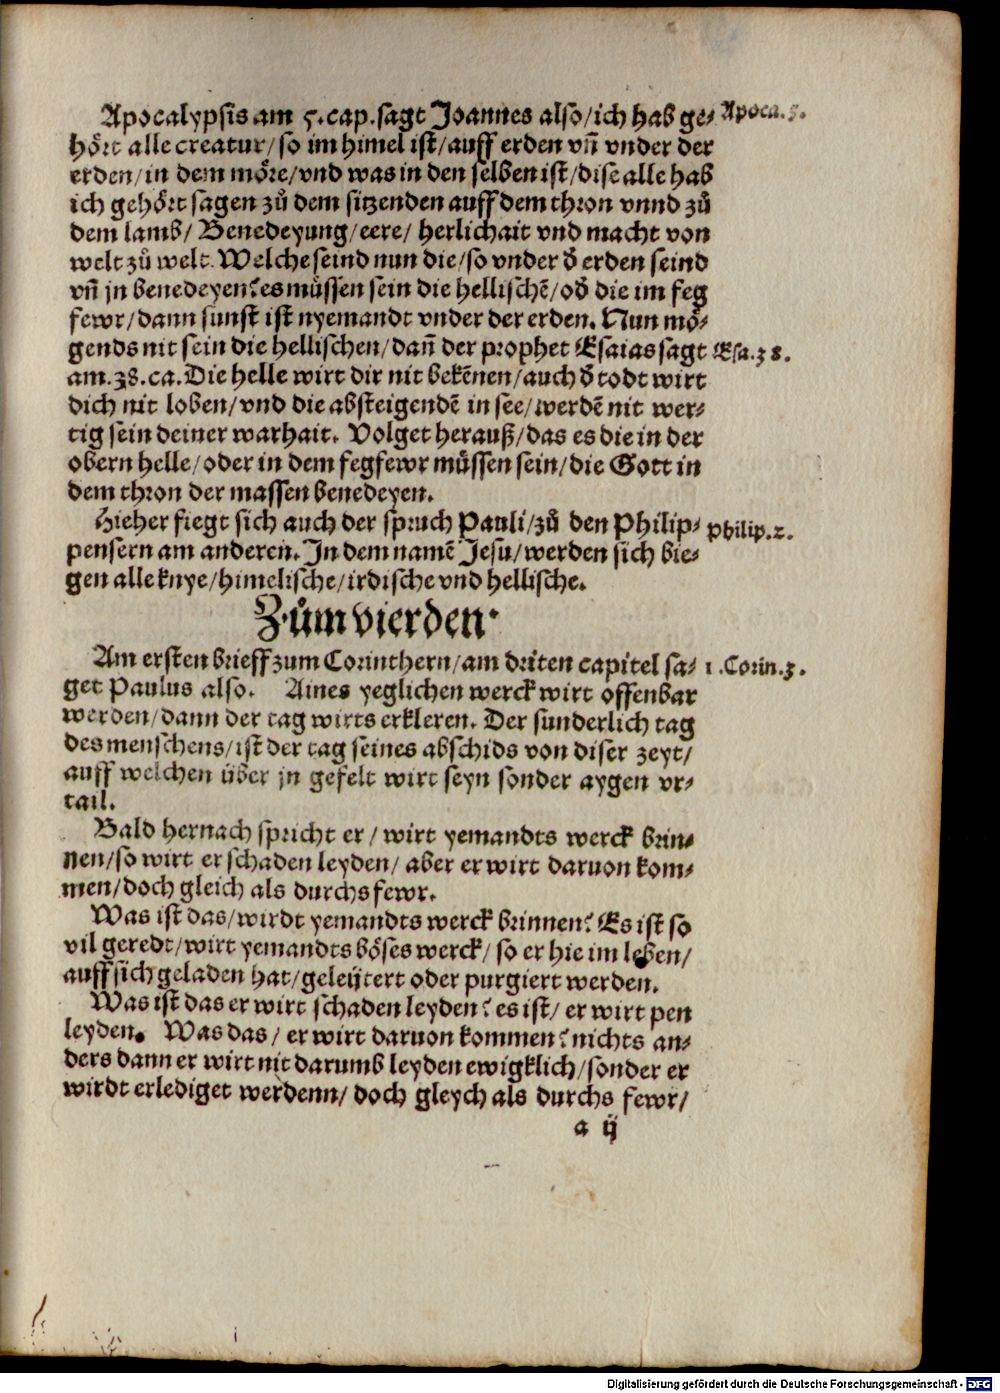 Apocalypsis am 5.cap.sagt Joannes also/ich hab ge⸗ Apoca.5.
hört alle creatur/so im himel ist/auff erden vñ vnder der
erden/in dem möre/vnd was in den selben ist/dise alle hab
ich gehört sagen zů dem sitzenden auff dem thron vnnd zů
dem lamb/ Benedeyung/eere/ herlichait vnd macht von
welt zů welt. Welche seind nun die/so vnder ð erden seind
vñ jn benedeyen? es müssen sein die hellischē/oð die im feg
fewr/dann sunst ist nyemandt vnder der erden. Nun mö⸗
gends nit sein die hellischen/dañ der prophet Esaias sagt Esa.38.
am.38.ca.Die helle wirt dir nit bekēnen/auch ð todt wirt
dich nit loben/vnd die absteigendē in see/werdē nit wer⸗
tig sein deiner warhait. Volget herauß/das es die in der
obern helle/oder in dem fegfewr müssen sein/die Gott in
dem thron der massen benedeyen.
Hieher fiegt sich auch der spruch Pauli/zů den Philip⸗ Philip.2.
pensern am anderen. In dem namē Jesu/werden sich bie⸗
gen alle knye/himelische/irdische vnd hellische.
Zům vierden.
Am ersten brieff zum Corinthern/am driten capitel sa⸗ 1.Corin.3.
get Paulus also. Aines yeglichen werck wirt offenbar
werden/dann der tag wirts erkleren. Der sunderlich tag
des menschens/ist der tag seines abschids von diser zeyt/
auff welchen über jn gefelt wirt seyn sonder aygen vr⸗
tail.
Bald hernach spricht er/ wirt yemandts werck brin⸗
nen/so wirt er schaden leyden/ aber er wirt daruon kom⸗
men/doch gleich als durchs fewr.
Was ist das/wirdt yemandts werck brinnen? Es ist so
vil geredt/wirt yemandts böses werck/ so er hie im leben/
auff sich geladen hat/geleÿtert oder purgiert werden.
Was ist das er wirt schaden leyden? es ist/ er wirt pen
leyden. Was das/ er wirt daruon kommen? nichts an⸗
ders dann er wirt nit darumb leyden ewigklich/sonder er
wirdt erlediget werdenn/ doch gleych als durchs fewr/
a ij
Digitalisierung gefördert durch die Deutsche Forschungsgemeinschaft - DFG